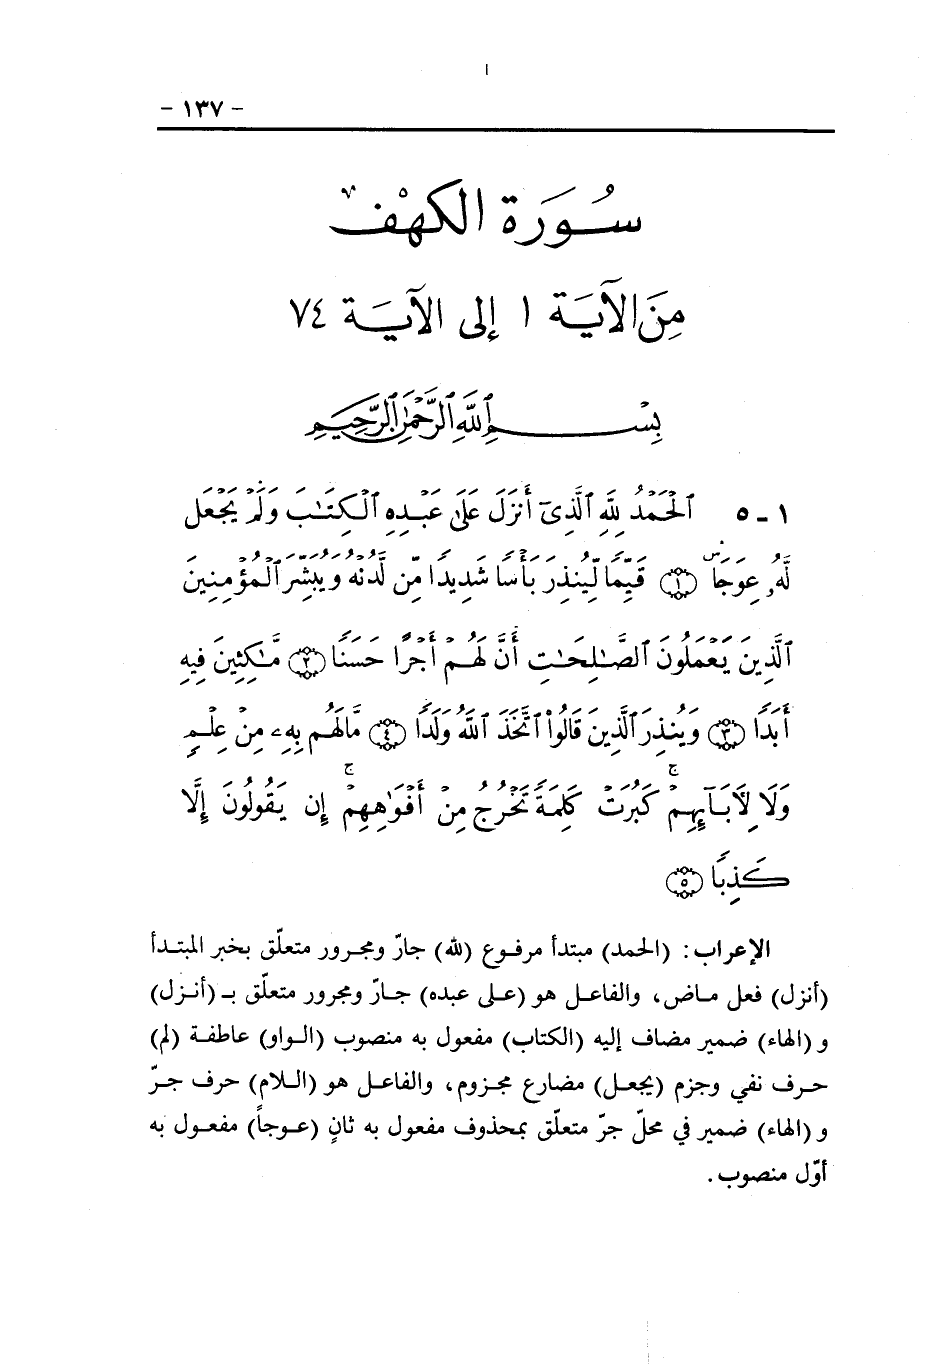 - ١٣٧ -
سُورَة الكهْف
مِنَ الآيَة ١ إلى الآيَة ٧٤
بِسْمِ ٱللَّهِ ٱلرَّحْمَٰنِ ٱلرَّحِيمِ
١ - ٥ ٱلْحَمْدُ لِلَّهِ ٱلَّذِىٓ أَنزَلَ عَلَىٰ عَبْدِهِ ٱلْكِتَٰبَ وَلَمْ يَجْعَل
لَّهُۥ عِوَجَاۜ ﴿١﴾ قَيِّمًا لِّيُنذِرَ بَأْسًا شَدِيدًا مِّن لَّدُنْهُ وَيُبَشِّرَ ٱلْمُؤْمِنِينَ
ٱلَّذِينَ يَعْمَلُونَ ٱلصَّٰلِحَٰتِ أَنَّ لَهُمْ أَجْرًا حَسَنًا ﴿٢﴾ مَّٰكِثِينَ فِيهِ
أَبَدًا ﴿٣﴾ وَيُنذِرَ ٱلَّذِينَ قَالُوا۟ ٱتَّخَذَ ٱللَّهُ وَلَدًا ﴿٤﴾ مَّا لَهُم بِهِۦ مِنْ عِلْمٍ
وَلَا لِـَٔابَآئِهِمْ ۚ كَبُرَتْ كَلِمَةً تَخْرُجُ مِنْ أَفْوَٰهِهِمْ ۚ إِن يَقُولُونَ إِلَّا
كَذِبًا ﴿٥﴾
الإعراب: (الحمد) مبتدأ مرفوع (لله) جارّ ومجرور متعلّق بخبر المبتدأ
(أنزل) فعل ماض، والفاعل هو (على عبده) جارّ ومجرور متعلق بـ (أنزل)
و (الهاء) ضمير مضاف إليه (الكتاب) مفعول به منصوب (الواو) عاطفة (لم)
حرف نفي وجزم (يجعل) مضارع مجزوم، والفاعل هو (اللام) حرف جرّ
و (الهاء) ضمير في محلّ جرّ متعلّق بمحذوف مفعول به ثانٍ (عوجاً) مفعول به
أوّل منصوب.